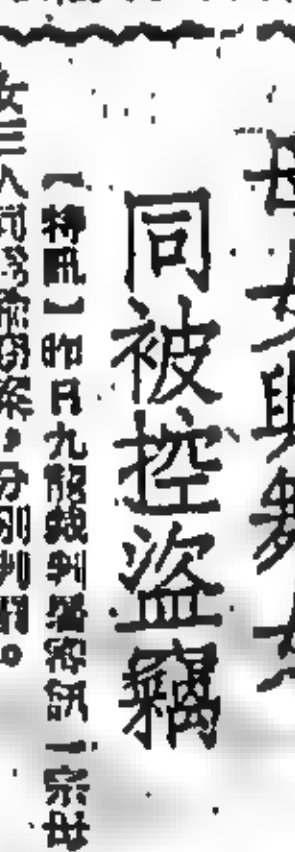 母女與舞女
同被控盜竊
【特訊】昨日九龍裁判署審訊一宗母
女三人同涉偷竊案，分別判罰。